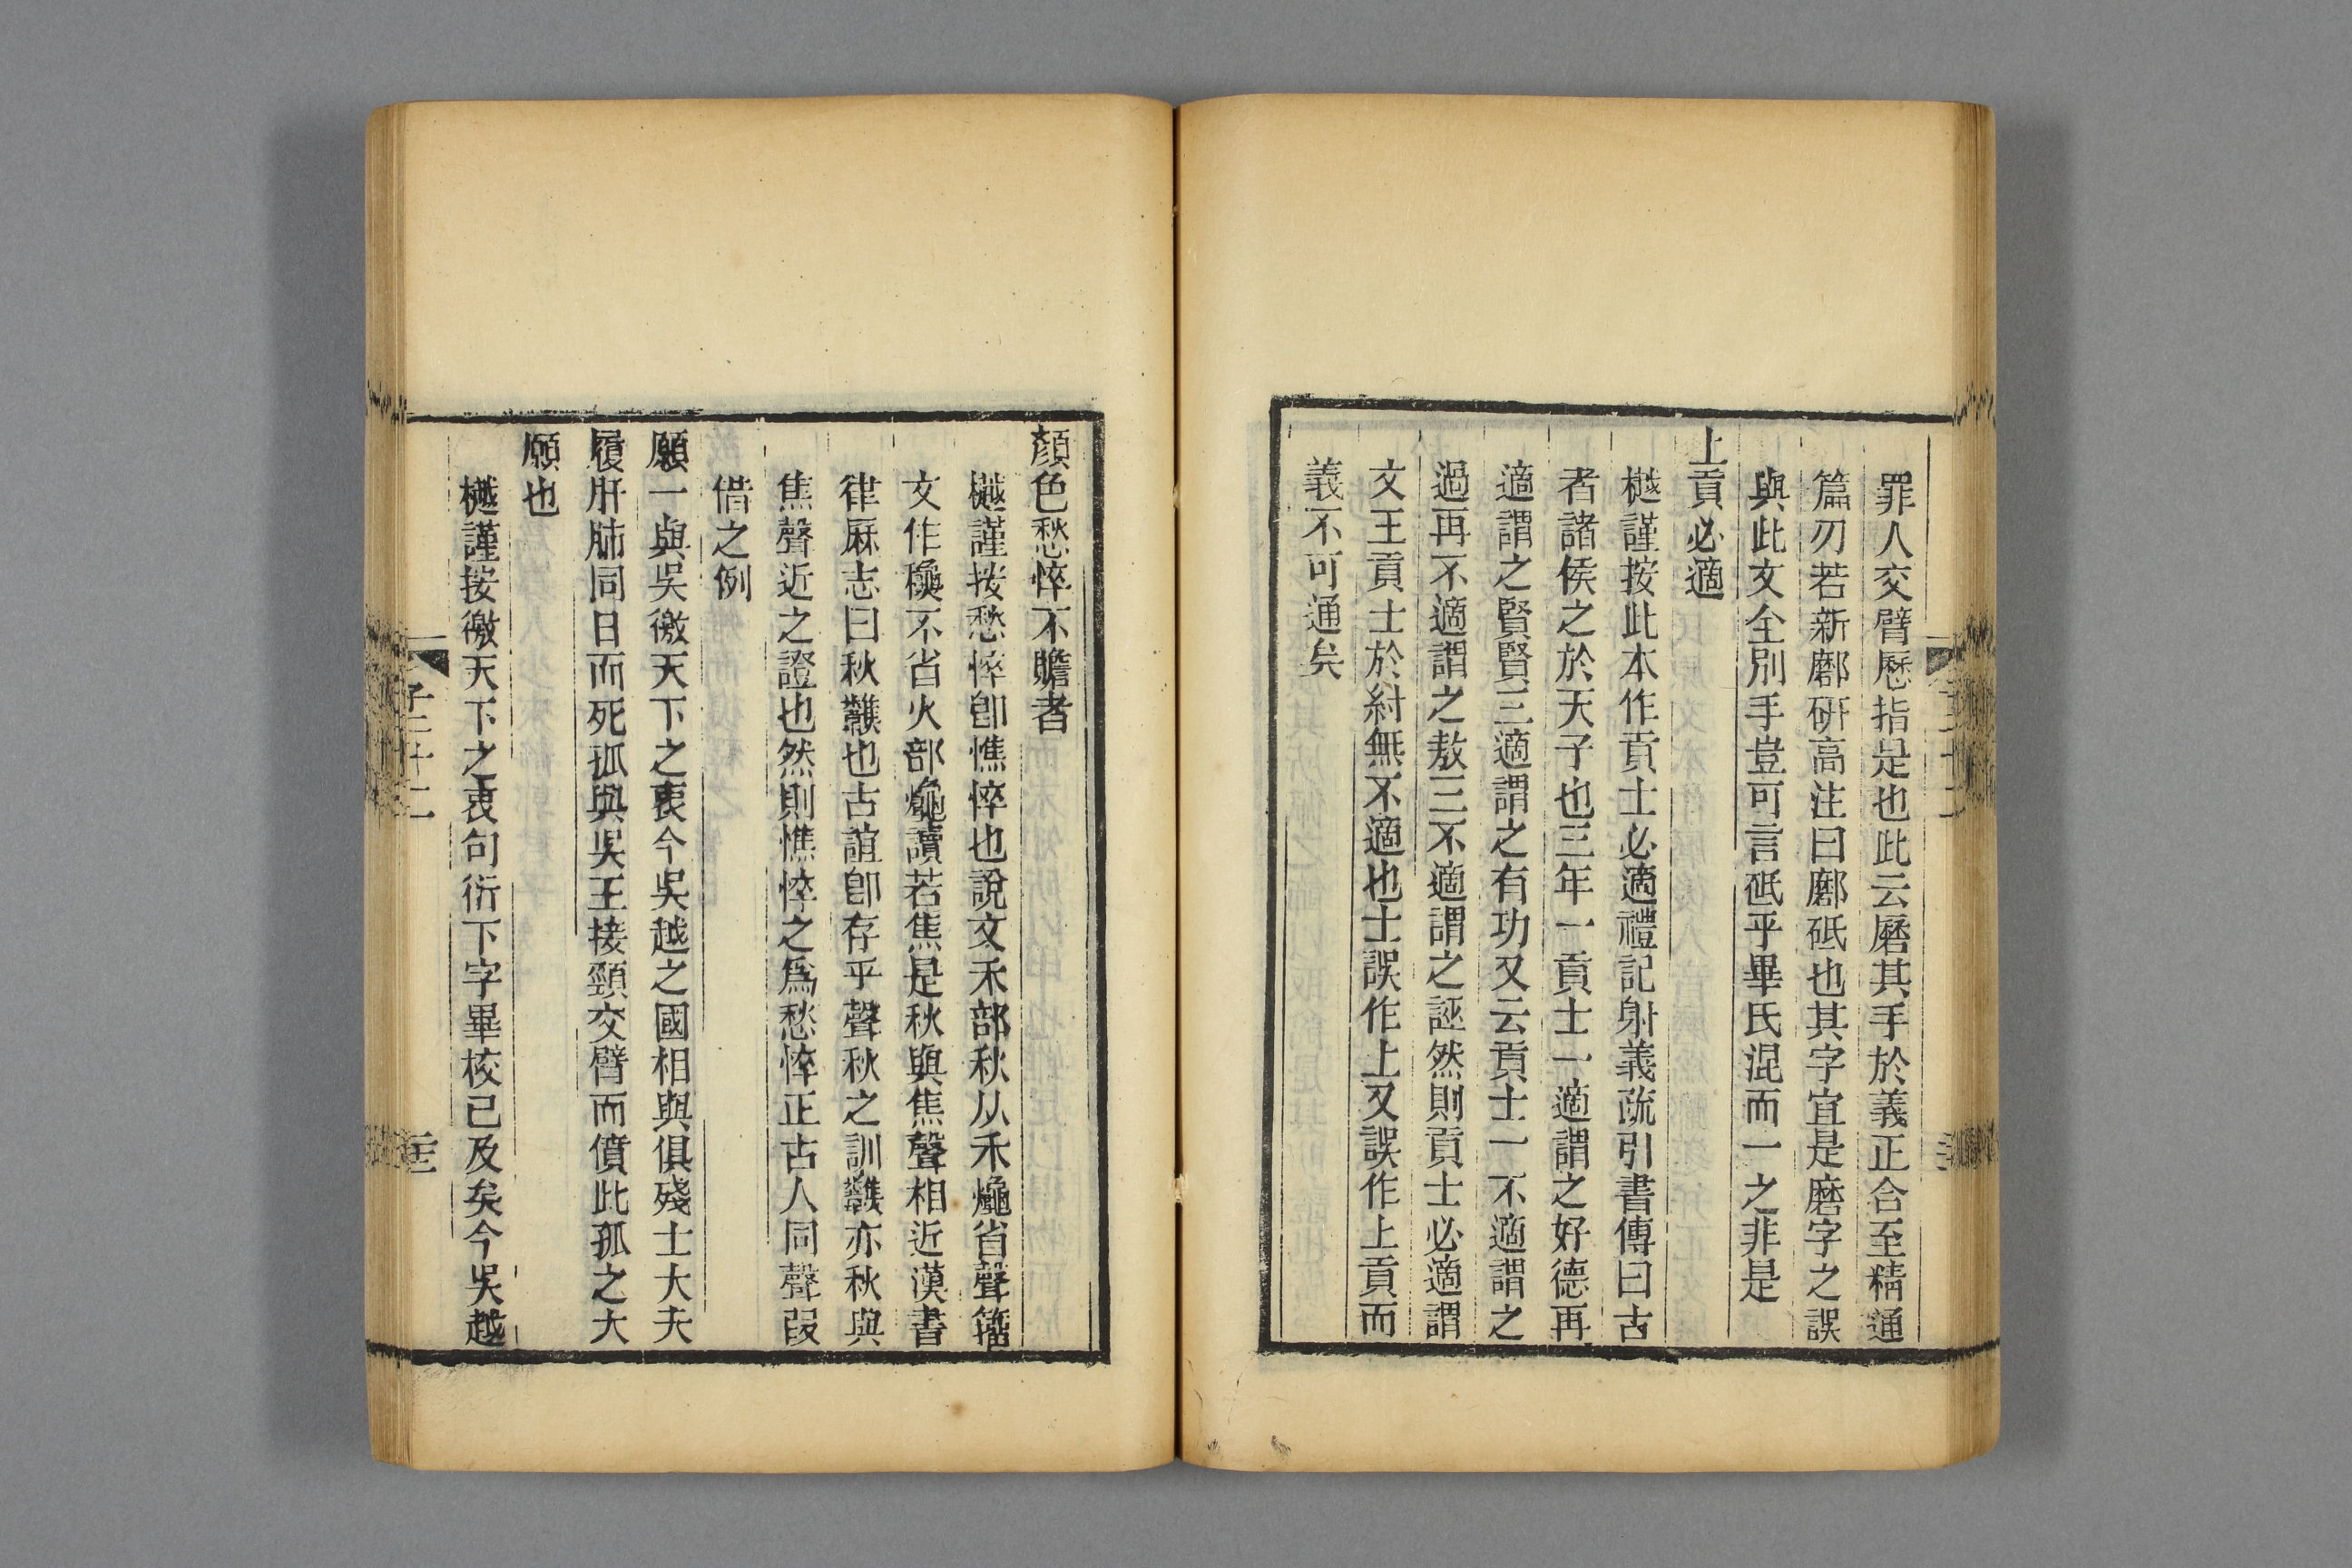 罪人交臂歷指是也此云磿其手於義正合至精通
篇刃若新磨研高注曰磨砥也其字宜是磨字之誤
與此文全別手豈可言砥乎畢氏混而一之非是
上貢必適
樾謹按此本作貢士必適禮記射義疏引書傳曰古
者諸侯之於天子也三年一貢士一適謂之好德再
適謂之賢賢三適謂之有功又云貢士一不適謂之
過再不適謂之敖三不適謂之誣然則貢士必適謂
文王貢士於紂無不適也士誤作上又誤作上貢而
義不可通矣
顏色愁悴不贍者
樾謹按愁悴卽憔悴也說文禾部秋从禾𤒅省聲籀
文作龝不省火部𤒅讀若焦是秋與焦聲相近漢書
律厤志曰秋𪚰也古誼卽存乎聲秋之訓𪚰亦秋與
焦聲近之證也然則憔悴之爲愁悴正古人同聲叚
借之例
願一與吳徼天下之衷今吳越之國相與俱殘士大夫
履肝肺同日而死孤與吳王接頸交臂而僨此孤之大
願也
樾謹按徼天下之衷句衍下字畢校已及矣今吳越
子二十二